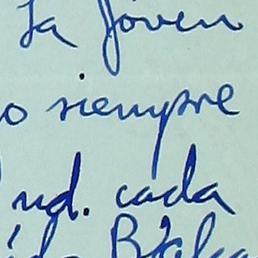 La joven
o siempre
ud. cada